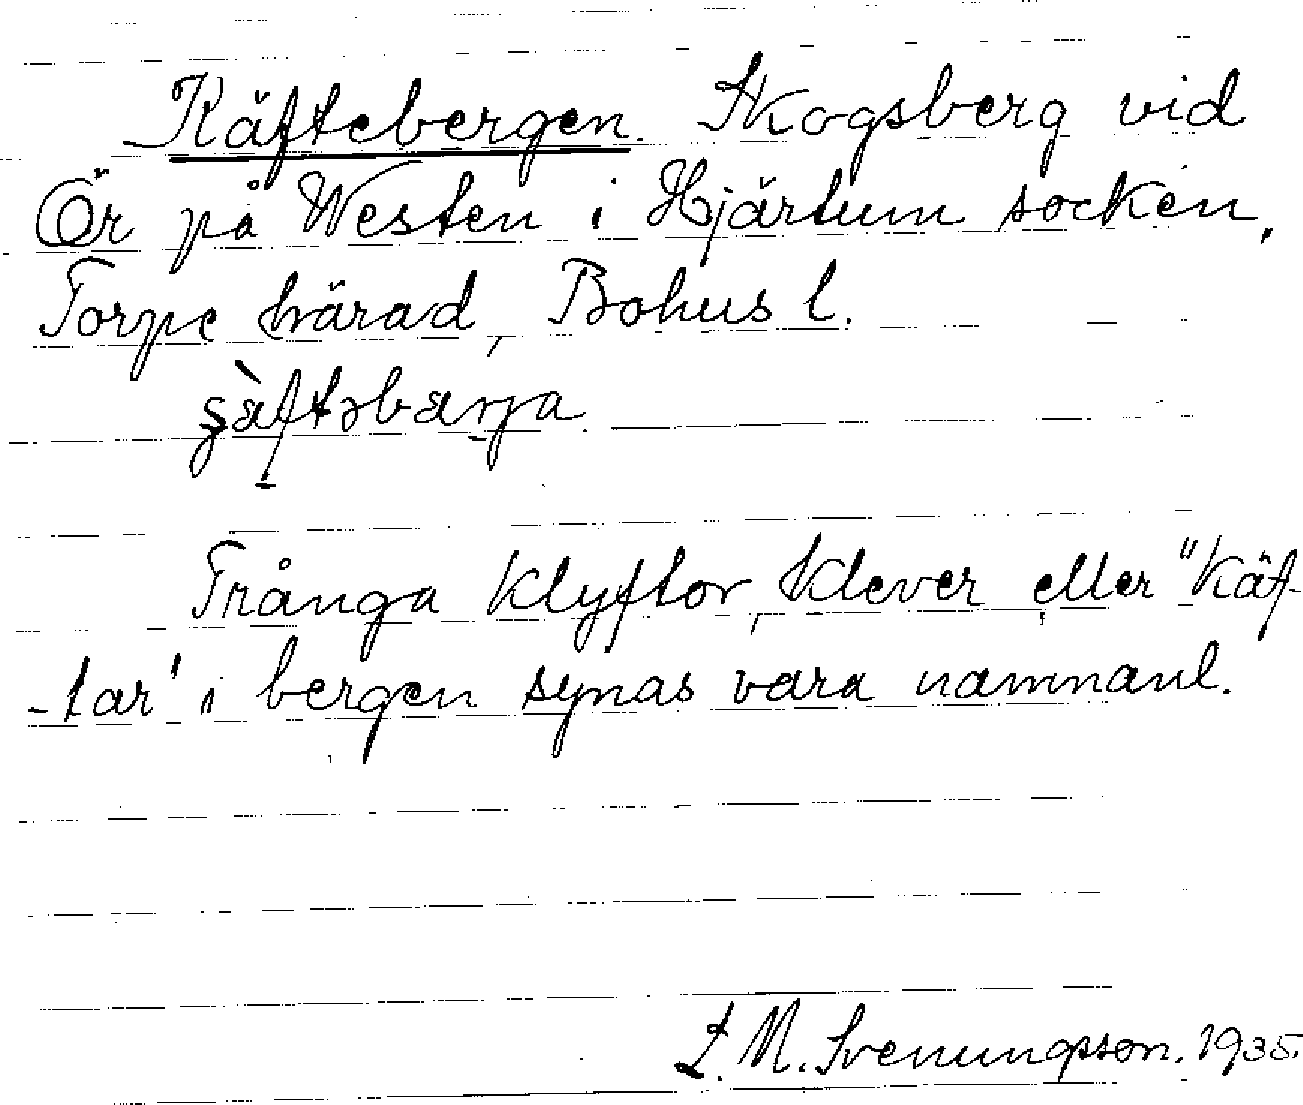 Käftebergen. Skogsberg vid
Ör på Westen i Hjärtum socken,
Torpe härad, Bohus l.
Trånga klyftor, klever eller "käf-
-tar" i bergen synas vara namnanl.
L. M. Svenungsson. 1935.